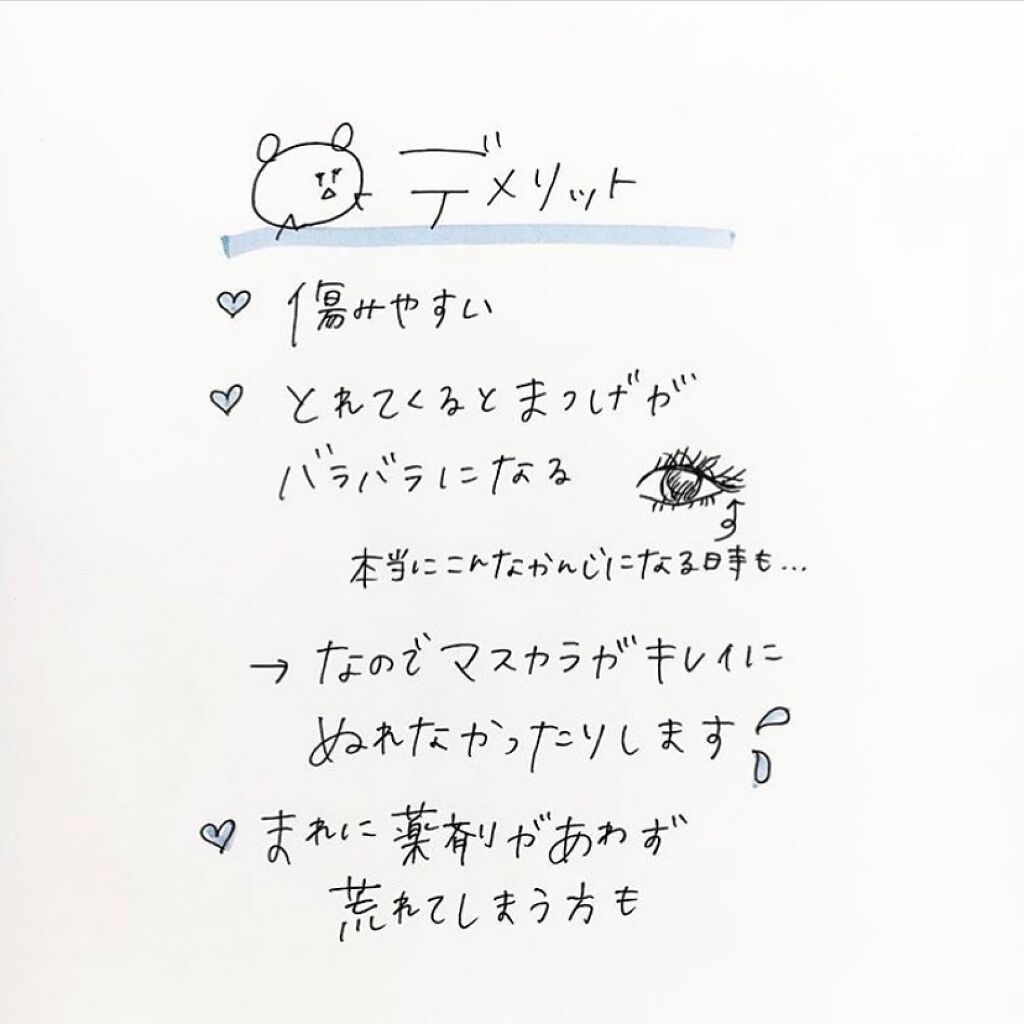 デメリット
♡ 傷みやすい
♡ とれてくるとまつげが
バラバラになる
本当にこんなかんじになる日事も...
→ なのでマスカラがキレイに
ぬれなかったりします
♡ まれに薬剤があわず
荒れてしまう方も